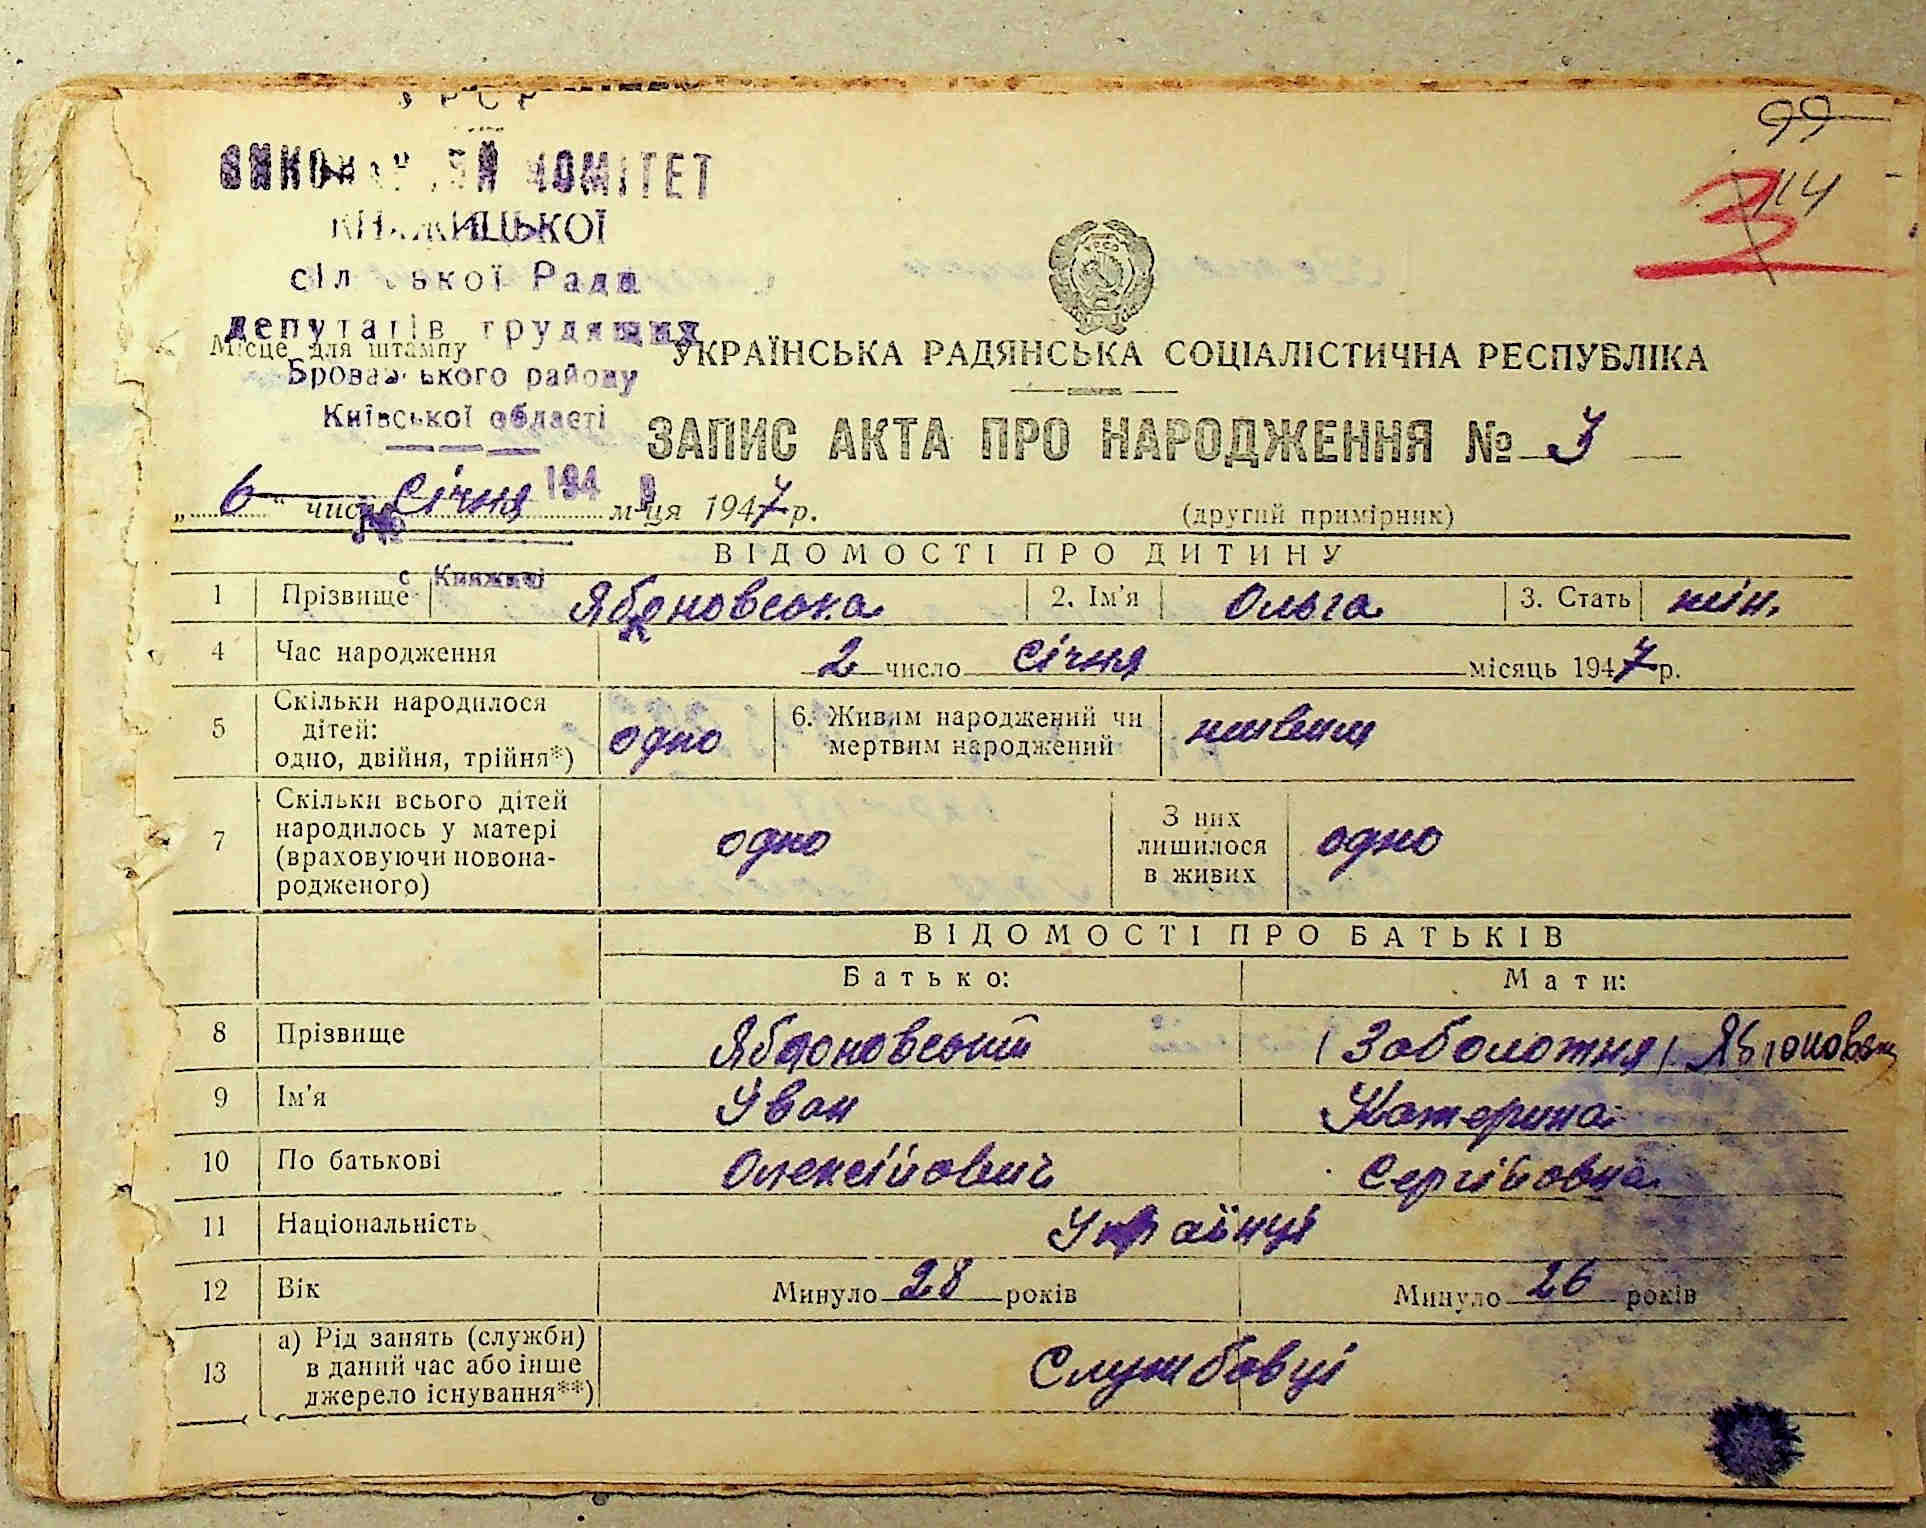 УРСР
99
ВИКОНАВЧИЙ КОМІТЕТ
114
3
КНЯЖИЦЬКОЇ
сільської Ради
депутатів трудящих
Місце для штампу
УКРАЇНСЬКА РАДЯНСЬКА СОЦІАЛІСТИЧНА РЕСПУБЛІКА
Броварського району
Київської області
ЗАПИС АКТА ПРО НАРОДЖЕННЯ № 3
194 р
„6“ числа Січня м-ця 1947 р.
(другий примірник)
ВІДОМОСТІ ПРО ДИТИНУ
с Княжичі
1 Прізвище Яблоновська 2. Ім'я Ольга 3. Стать жін.
4 Час народження 2 число Січня місяць 1947 р.
5 Скільки народилося дітей: одно, двійня, трійня*) одно 6. Живим народжений чи мертвим народжений живим
7 Скільки всього дітей народилось у матері (враховуючи новонародженого) одно З них лишилося в живих одно
ВІДОМОСТІ ПРО БАТЬКІВ
Батько: Мати:
8 Прізвище Яблоновський (Заболотня) Яблоновськ
9 Ім'я Іван Катерина
10 По батькові Олексійович Сергійовна
11 Національність Українці
12 Вік Минуло 28 років Минуло 26 років
13 а) Рід занять (служби) в даний час або інше джерело існування**) Службовці